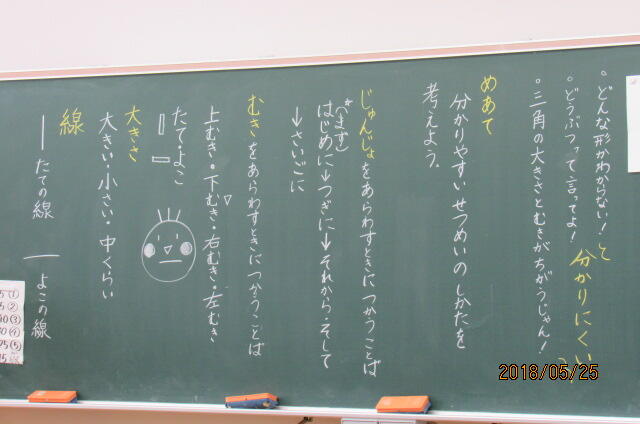 ・どんな形かわからない!
・どうぶつって言ってよ!
・三角の大きさとむきがちがうじゃん!
と分かりにくい
めあて
分かりやすいせつめいのしかたを
考えよう。
じゅんじょをあらわすときにつかうことば
(まず)
はじめに→つぎに→それから・そして
→さいごに
むきをあらわすときにつかうことば
上むき・下むき・右むき・左むき
たて・よこ
大きさ
大きい・小さい・中くらい
線
たての線
よこの線
2018/05/25